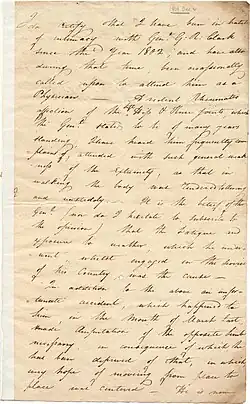 I certify that I have been in habits
of intimacy with Genl. G. R. Clark
since the Year 1802 and have also
during that time been occasionally
called upon to attend him as a
Physician Rheumatic
affection of the Hip & Knee joints, which
the Genl. stated to be of many years
standing. I have heard him frequently com-
plain of, attended with such general weak
ness of the extremity, as that in
walking the body was
and unsteady. It is the belief of the
Genl. (nor do I hesitate to subscribe to
the opinion) that the fatigue and
exposure to weather, which he under
-went, whilst engaged in the
of his Country, was the cause
In addition to the above an unfor-
tunate accident, which happened to
him in the Month of March last,
made Amputation of the opposite limb
necessary, in consequence of which he
has been deprived of that, in which
very hope of moving from place to
place was centered — He is now